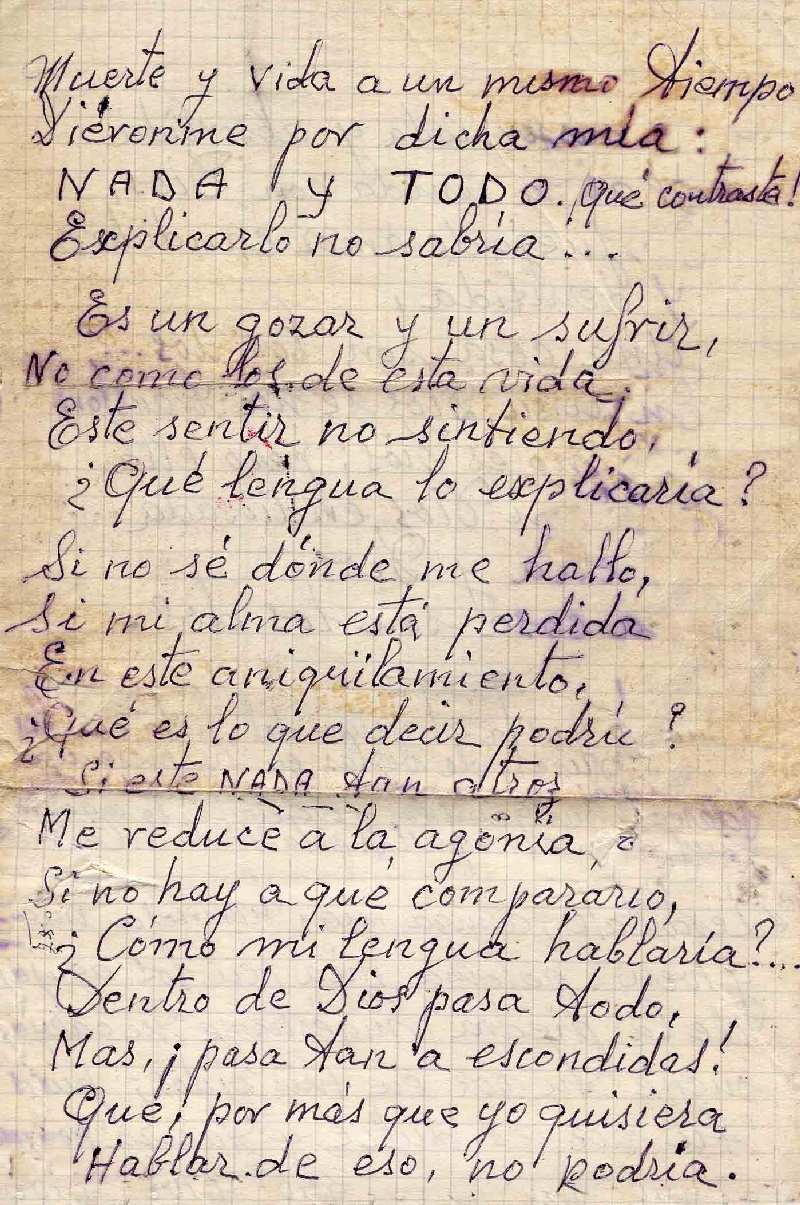 Muerte y vida a un mismo tiempo
Diéronme por dicha mía:
NADA y TODO. ¡Qué contraste!
Explicarlo no sabría...
Es un gozar y un sufrir,
No como los de esta vida.
Este sentir no sintiendo,
¿Qué lengua lo explicaría?
Si no sé dónde me hallo,
Si mi alma está perdida
En este aniquilamiento,
¿Qué es lo que decir podría?
Si este NADA tan atroz
Me reduce a la agonía,
Si no hay a qué compararlo,
¿Cómo mi lengua hablaría?...
Dentro de Dios pasa todo,
Mas, ¡pasa tan a escondidas!
Que, por más que yo quisiera
Hablar de eso, no podría.